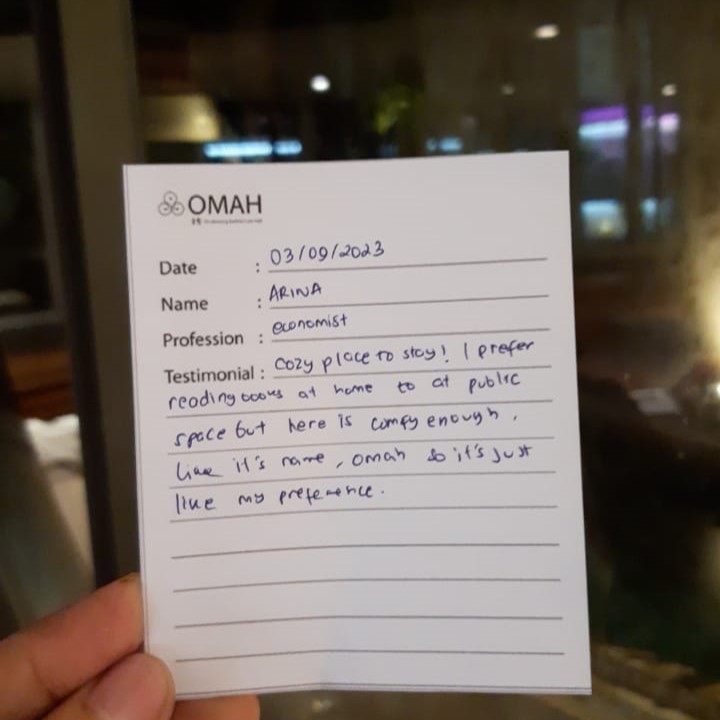 OMAH
Date : 03/09/2023
Name : ARINA
Profession : economist
Testimonial : Cozy place to stay! I prefer
reading books at home to at public
space but here is comfy enough,
like it's name, omah so it's just
like my preference.